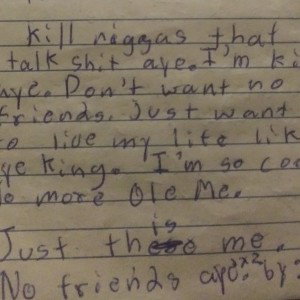 kill niggas that
talk shit aye. I'm ki
aye. Don't want no
friends. Just want
to live my life lik
ye King. I'm so co
o more Ole Me.
is
Just me.
No friends aye.x2 by